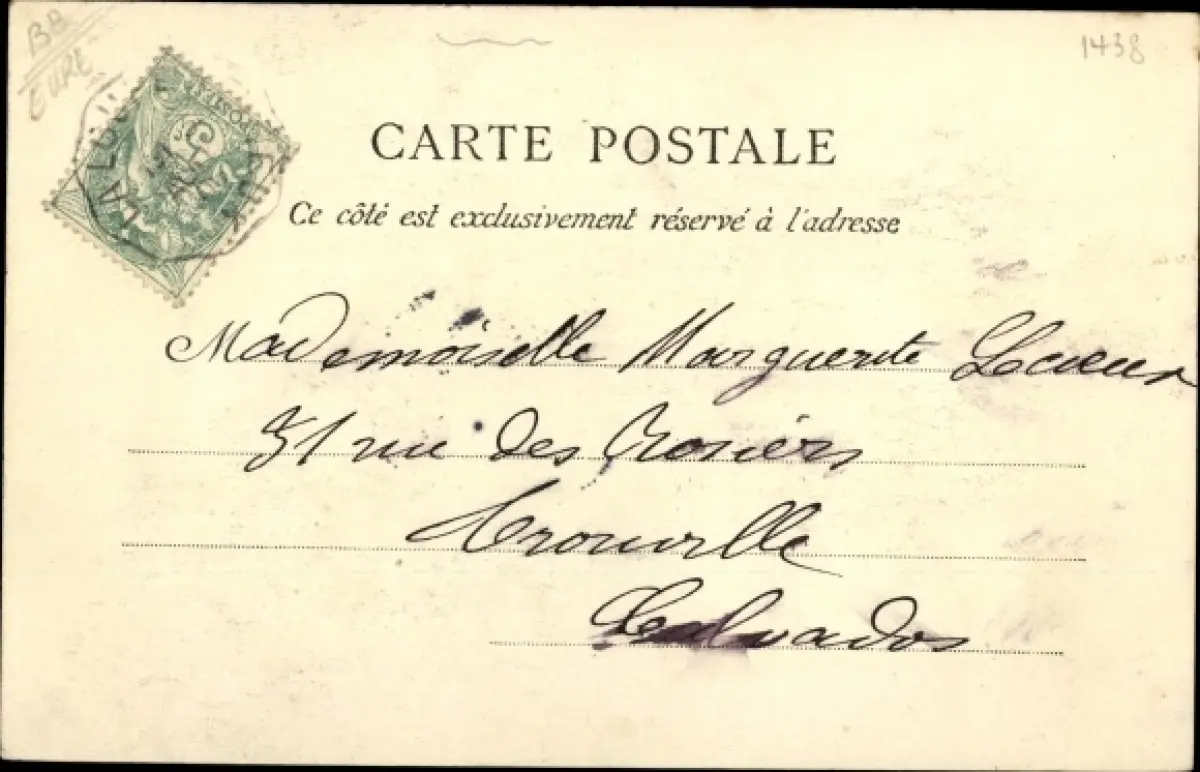 BB
EURE
1438
CARTE POSTALE
Ce côté est exclusivement réservé à l'adresse
Mademoiselle Marguerite Lecœur
51 rue des Rosiers
Trouville
Calvados